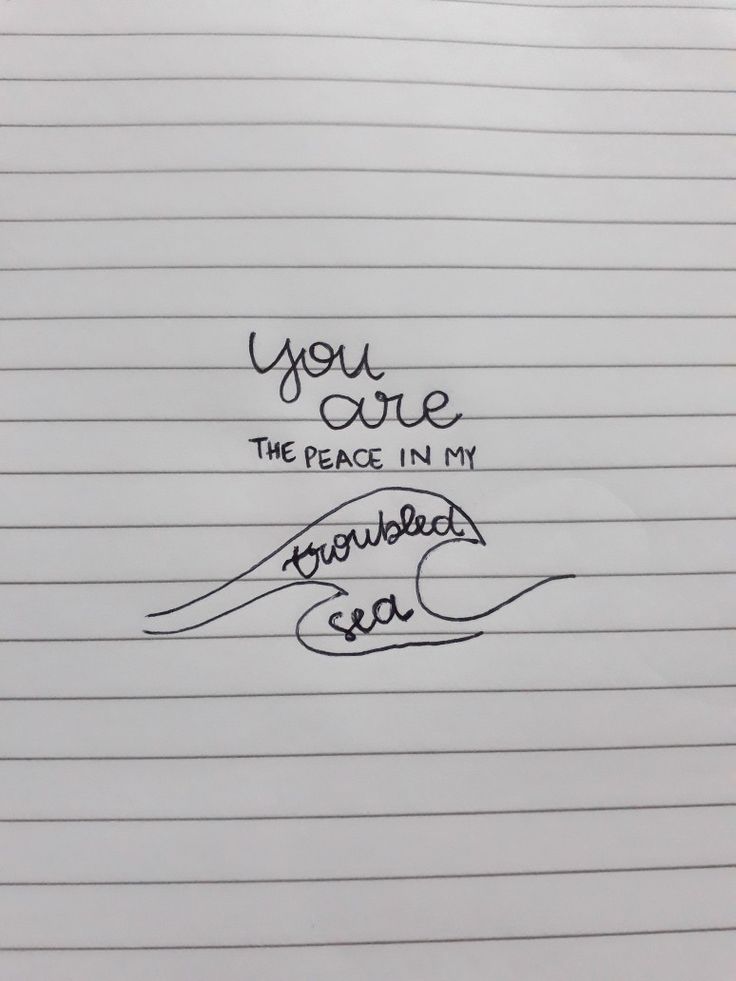 you
are
THE PEACE IN MY
troubled
sea